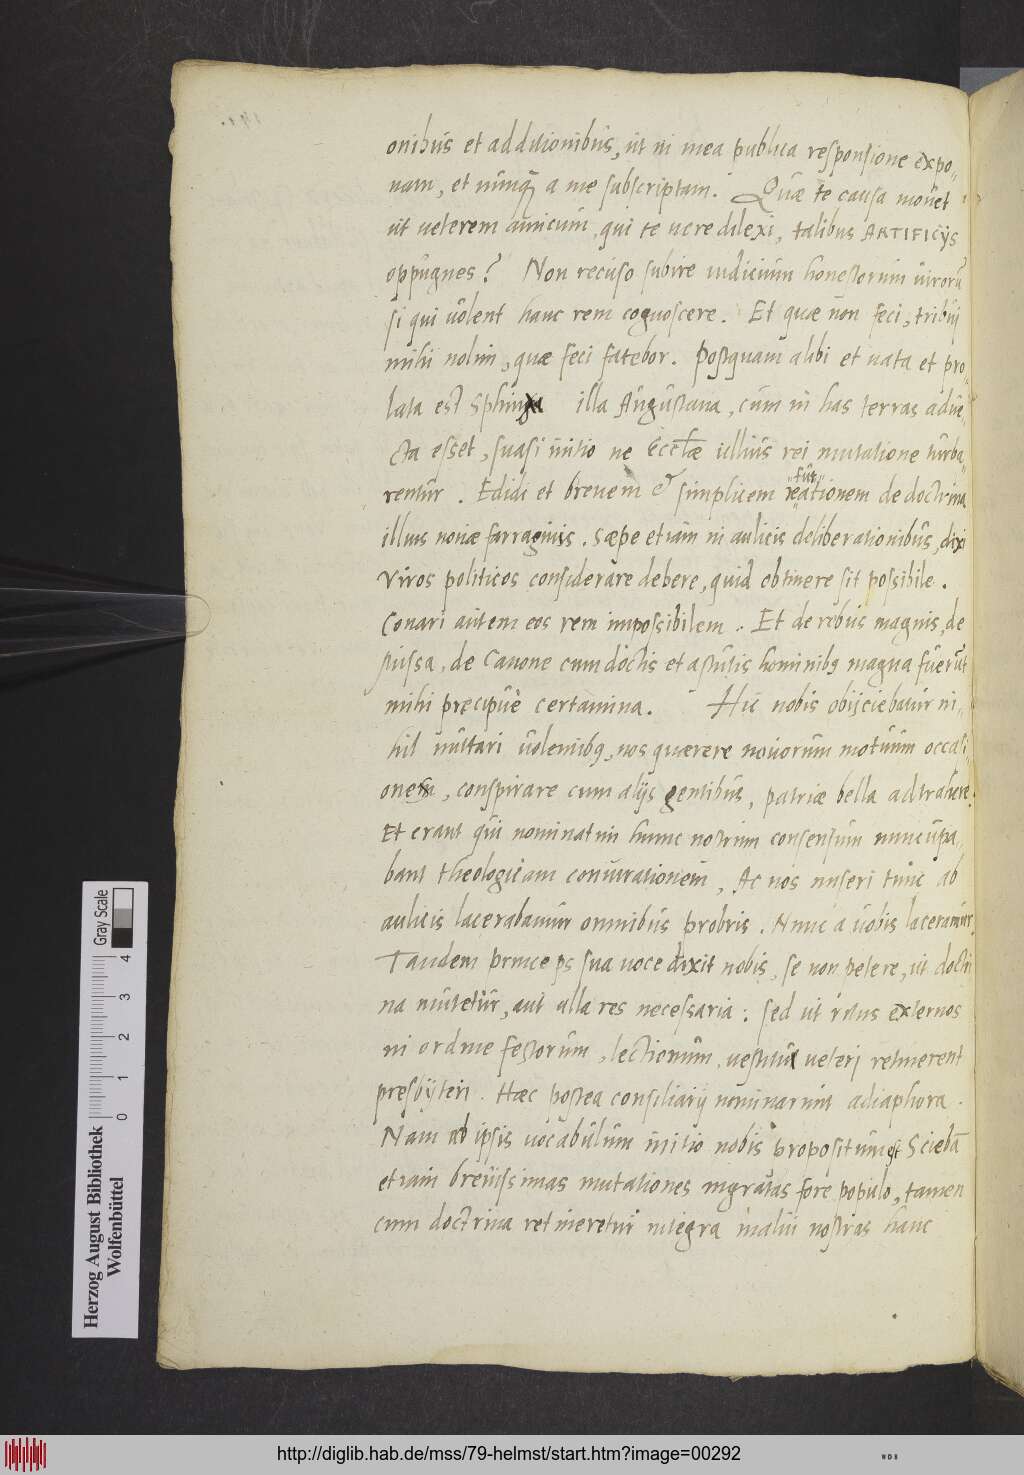 onibus et additionibus, ut in mea publica responsione expo„
nam, et nunq̃ a me subscriptam. Quæ te causa mouet
ut ueterem amicum, qui te uere dilexi, talibus ARTIFICijs
oppugnes? Non recuso subire iudicium honestorum uirorũ
si qui uolent hanc rem cognoscere. Et quæ non feci, tribui
mihi nolim, quæ feci fatebor. Postquam alibi et nata et pro„
lata est Sphinx illa Augustana, cum in has terras adue„
cta esset, suasi initio ne Eccłæ illius rei mutatione turba„
rentur. Edidi et breuem & simplicem refutationem de doctrina
illius nouæ farraginis. Sæpe etiam in aulicis deliberationibus, dixi
Viros politicos considerare debere, quid obtinere sit possibile.
Conari autem eos rem impossibilem. Et de rebus magnis, de
Missa, de Canone cum doctis et astutis hominibꝫ magna fuerũt
mihi precipuè certamina. Hic nobis obijciebatur ni„
hil mutari uolentibꝫ, nos quærere nouorum motuum occasi„
onem, conspirare cum alijs gentibus, patriæ bella adtrahere.
Et erant qui nominatim hunc nostrum consensum nuncupa„
bant theologicam coniurationem, Ac nos miseri tunc ab
aulicis lacerabamur omnibus probris. Nunc a uobis laceramur.
Tandem princeps sua uoce dixit nobis, se non petere, ut doctri
na mutetur, aut ulla res necessaria: sed ut ritus externos
in ordine festorum, lectionum, uestitu ueteri retinerent
presbyteri. Hæc postea consiliarij nominarunt adiaphora.
Nam ab ipsis uocabulum initio nobis propositum est Sciebã
etiam breuissimas mutationes ingratas fore populo, tamen
cum doctrina retineretur integra malui nostras hanc
Herzog August Bibliothek
Wolfenbüttel
0 1 2 3 4
Gray Scale
http://diglib.hab.de/mss/79-helmst/start.htm?image=00292
WDB